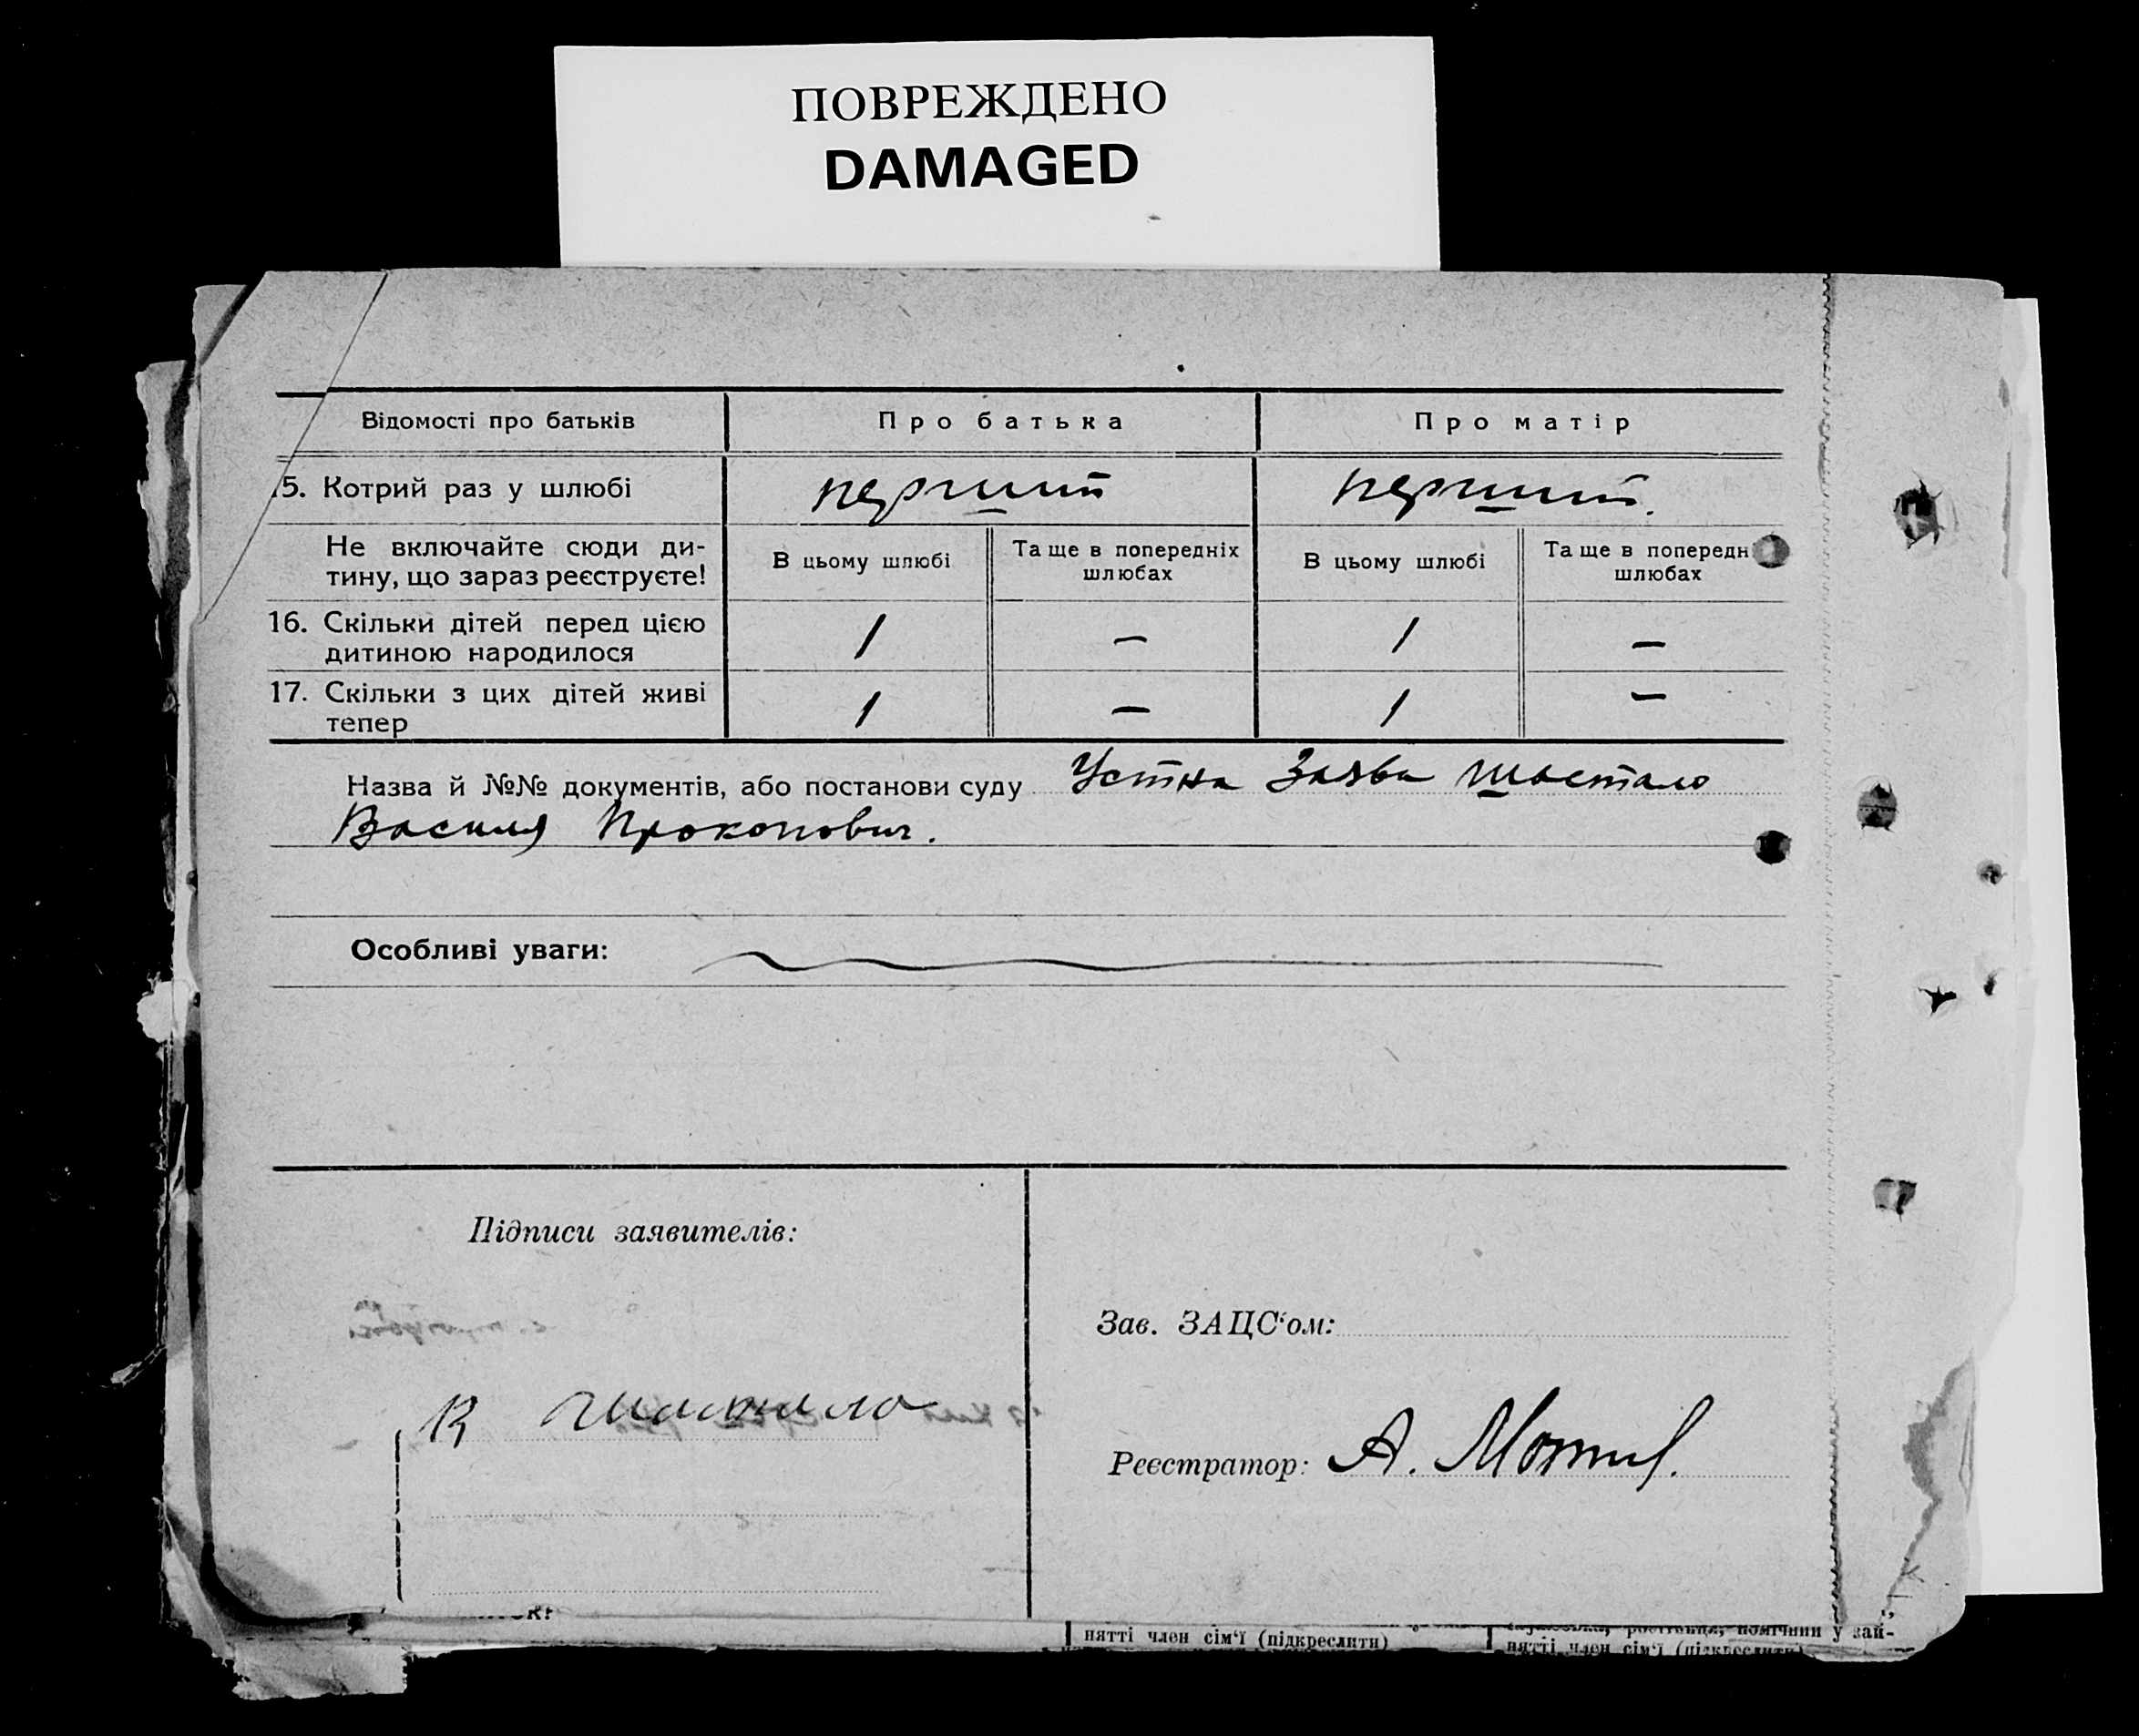 ПОВРЕЖДЕНО
DAMAGED
Відомості про батьків
Про батька
Про матір
5. Котрий раз у шлюбі
перший
перший.
Не включайте сюди ди-
тину, що зараз реєструєте!
В цьому шлюбі
Та ще в попередніх
шлюбах
В цьому шлюбі
Та ще в попередн
шлюбах
16. Скільки дітей перед цією
дитиною народилося
1
—
1
—
17. Скільки з цих дітей живі
тепер
1
—
1
—
Назва й №№ документів, або постанови суду Устна Заява Шостало
Василя Прокопович.
Особливі уваги:
Підписи заявителів:
В Шостало
Зав. ЗАЦС‘ом:
Реєстратор: А.
нятті член сім‘ї (підкреслити)
у зай-
нятті член сім‘ї (підкреслити)